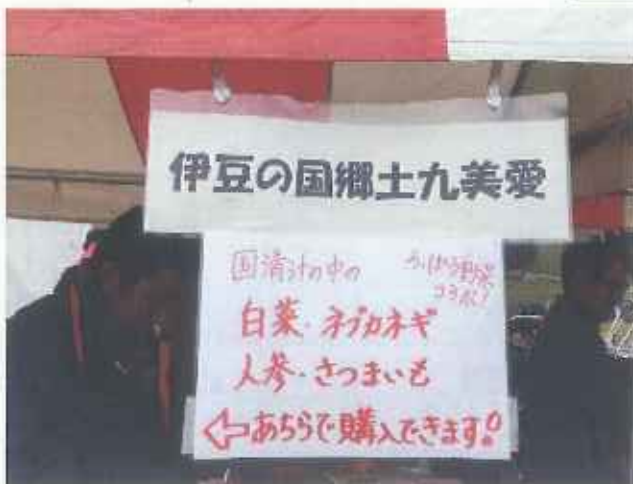 伊豆の国郷土九美愛
国清汁の中の
白菜・ネブカネギ
人参・さつまいも
⇦あちらで購入できます!